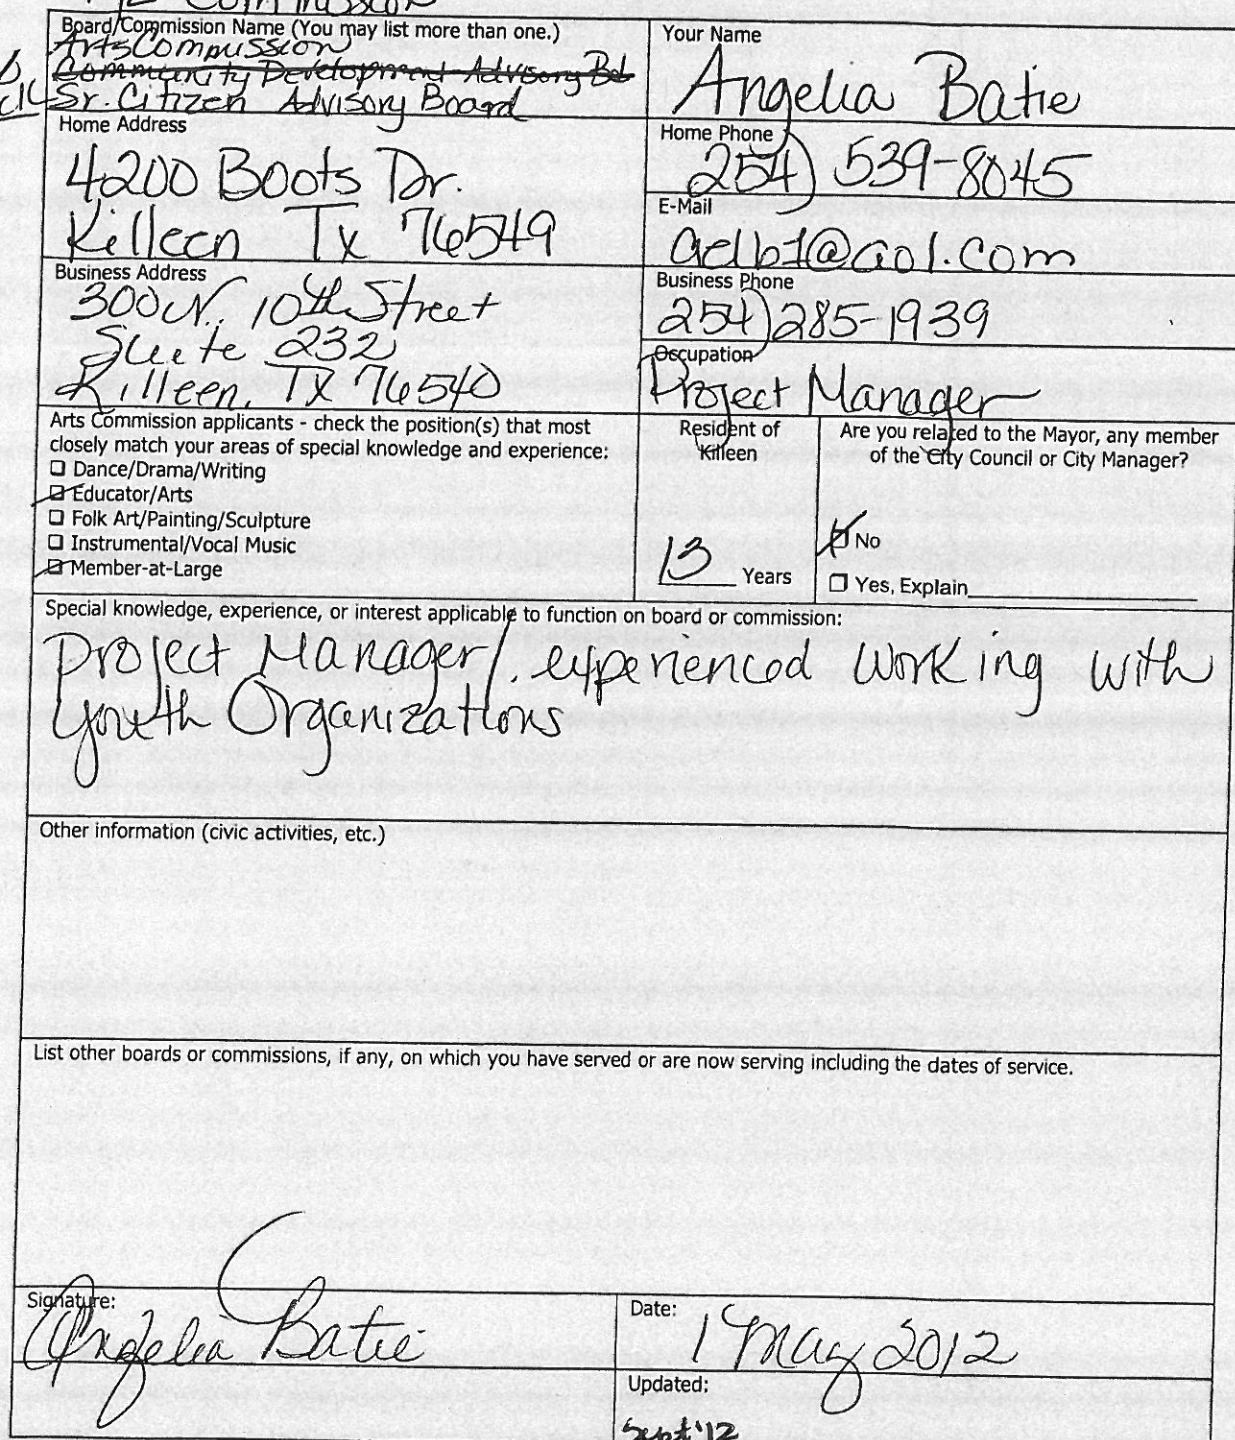 Commission
Board/Commission Name (You may list more than one.)
Arts Commission
Community Development Advisory Bd
Sr. Citizen Advisory Board
Your Name
Angelia Batie
Home Address
4200 Boots Dr.
Killeen Tx 76549
Home Phone
254) 539-8045
E-Mail
aelb1@aol.com
Business Address
300 N. 10th Street
Suite 232
Killeen, TX 76540
Business Phone
254) 285-1939
Occupation
Project Manager
Arts Commission applicants - check the position(s) that most
closely match your areas of special knowledge and experience:
❑ Dance/Drama/Writing
❑ Educator/Arts
❑ Folk Art/Painting/Sculpture
❑ Instrumental/Vocal Music
❑ Member-at-Large
Resident of
Killeen
13 Years
Are you related to the Mayor, any member
of the City Council or City Manager?
❑ No
❑ Yes, Explain
Special knowledge, experience, or interest applicable to function on board or commission:
Project Manager/. experienced working with
youth Organizations
Other information (civic activities, etc.)
List other boards or commissions, if any, on which you have served or are now serving including the dates of service.
Signature:
Angelia Batie
Date:
1 May 2012
Updated:
Sept '12